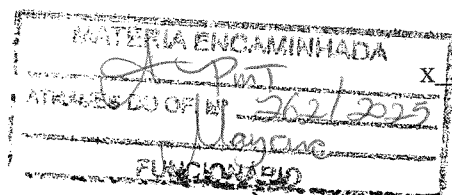 MATERIA ENCAMINHADA
A PmJ
X
ATRAVÉS DO OF. Nº 262/2025
Mayara
FUNCIONARIO